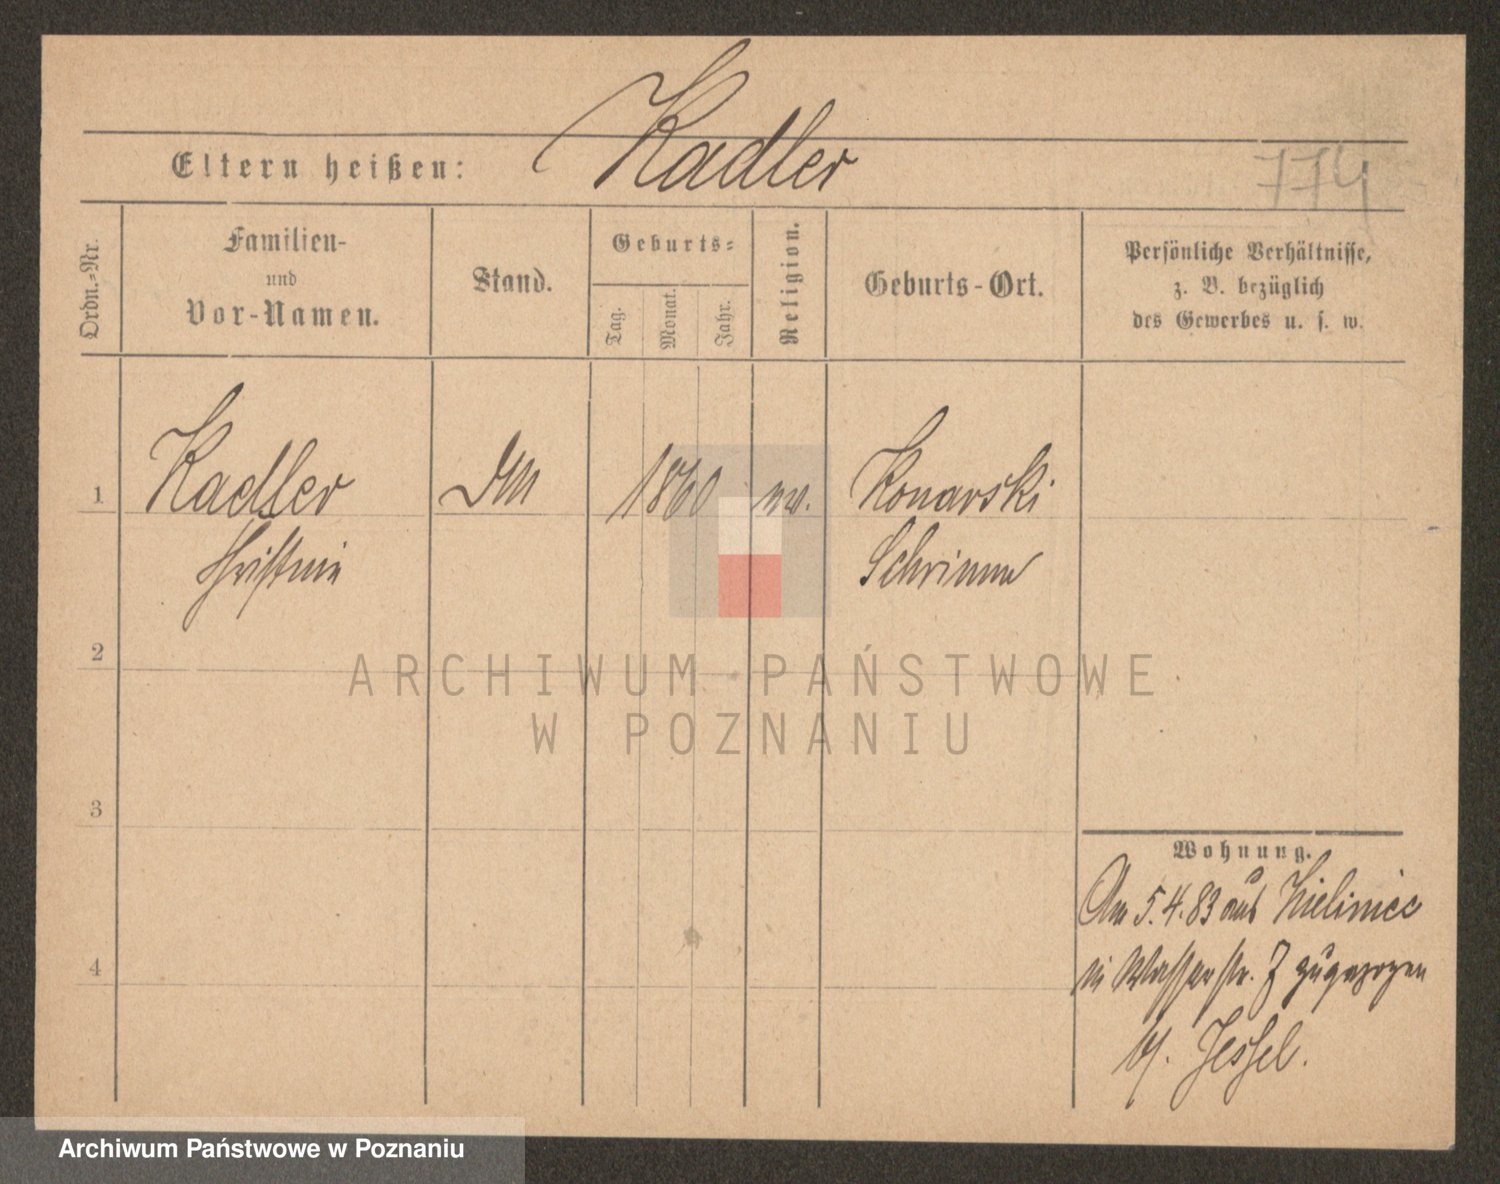 Kadler
Eltern heißen:
774
Ordn.-Nr.
Familien-
und
Vor-Namen.
Stand.
Geburts-
Tag.
Monat.
Jahr.
Religion.
Geburts-Ort.
Persönliche Verhältnisse,
z. B. bezüglich
des Gewerbes u. s. w.
1
Kadler
1860
Konarski
Schrimm
2
ARCHIWUM PAŃSTWOWE
W POZNANIU
3
Wohnung.
Am 5.4.83 aus
in Wasserstr. 7 zugezogen
b/. Jessel.
4
Archiwum Państwowe w Poznaniu